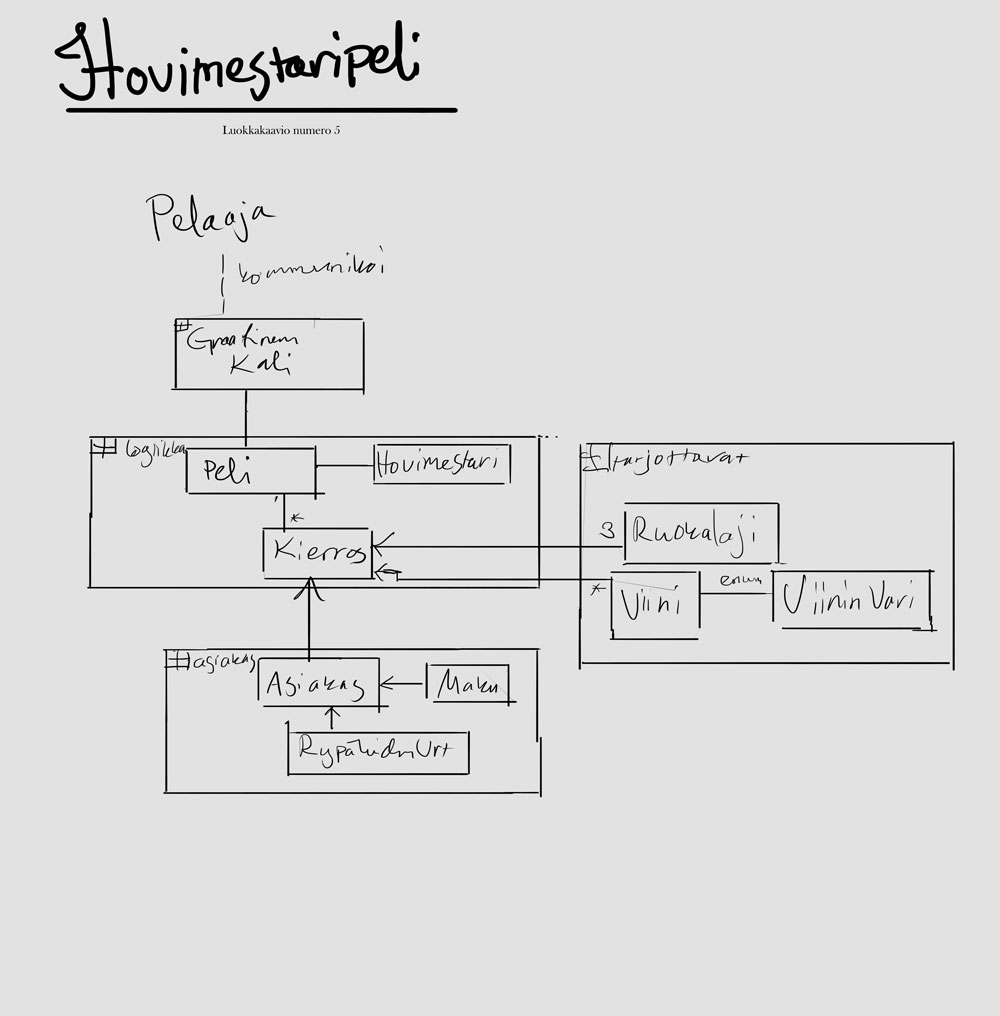 Hovimestaripeli
Luokkakaavio numero 5
Pelaaja
kommunikoi
#
Graafinen
Kali
# logiikka
Peli
Hovimestari
*
Kierros
tarjottavat
3
Ruokalaji
*
Viini
enum
Viinin Vari
# asiakas
Asiakas
Maku